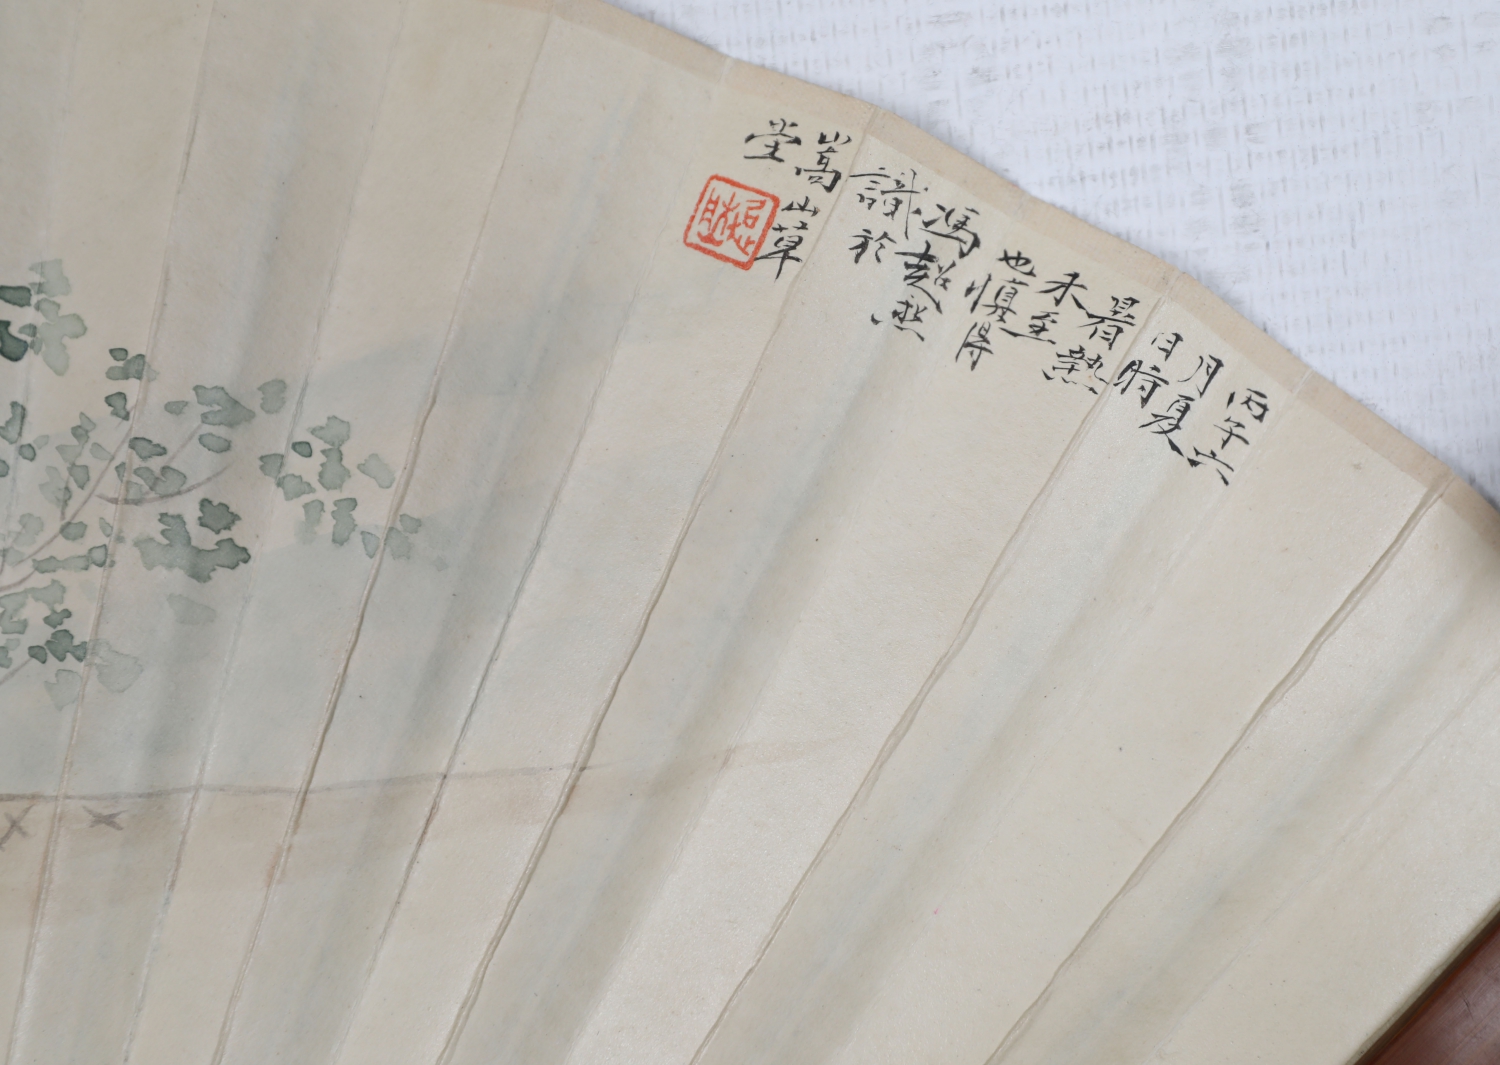 丙午六
月夏
日時
暑熱
未至
也慎得
馮超然
識於
嵩山草
堂